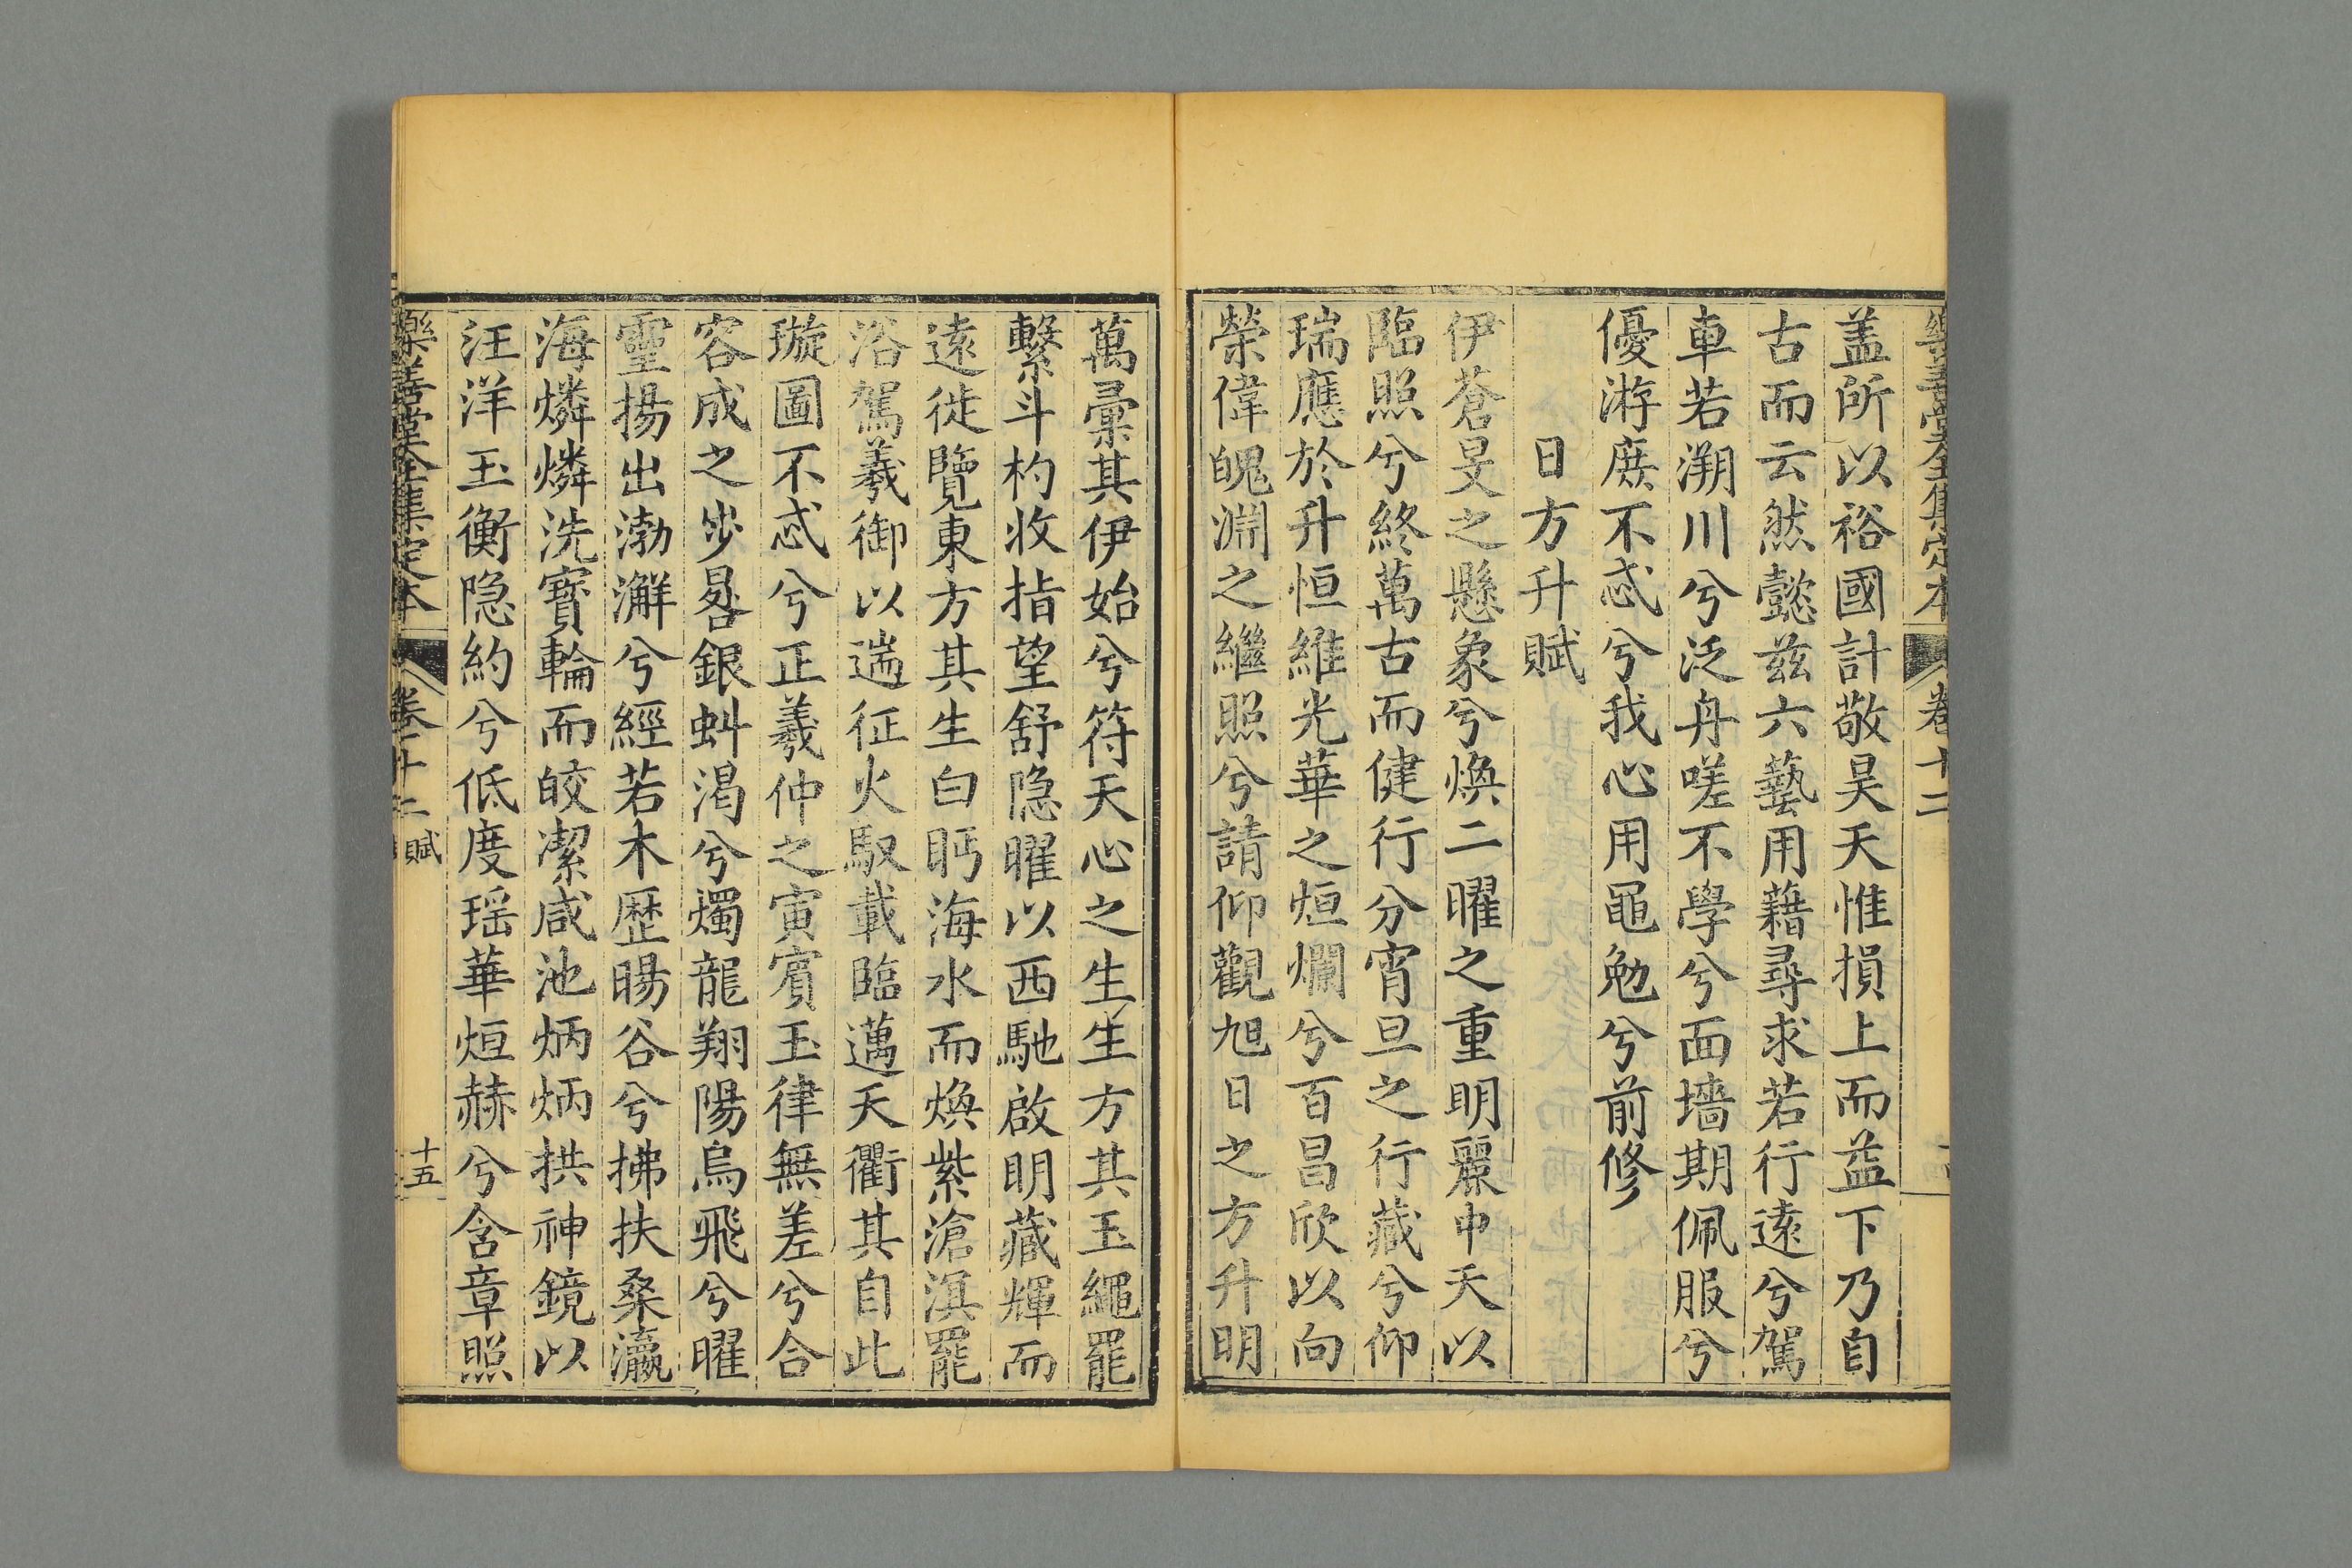 樂善堂全集定本 卷十二
盖所以裕國計敬昊天惟損上而益下乃自
古而云然懿茲六藝用藉尋求若行遠兮駕
車若溯川兮泛舟嗟不學兮面墻期佩服兮
優游庶不忒兮我心用黽勉兮前修
日方升賦
伊蒼旻之懸象兮煥二曜之重明麗中天以
臨照兮終萬古而健行分宵旦之行藏兮仰
瑞應於升恒維光華之烜爛兮百昌欣以向
榮偉睍淵之繼照兮請仰觀旭日之方升明
萬彙其伊始兮符天心之生生方其玉繩罷
繫斗杓收指望舒隐曜以西馳啟明藏輝而
遠徙覽東方其生白眄海水而煥紫滄溟罷
浴駕羲御以遄征火馭載臨邁天衢其自此
璇圖不忒兮正羲仲之寅賓玉律無差兮合
容成之步晷銀蚪渴兮燭龍翔陽烏飛兮曜
靈揚出渤澥兮經若木歷暘谷兮拂扶桑瀛
海燐燐洗寶輪而皎潔咸池炳炳拱神鏡以
汪洋玉衡隐約兮低度瑶華烜赫兮含章照
樂善堂全集定本 卷十二 賦 十五